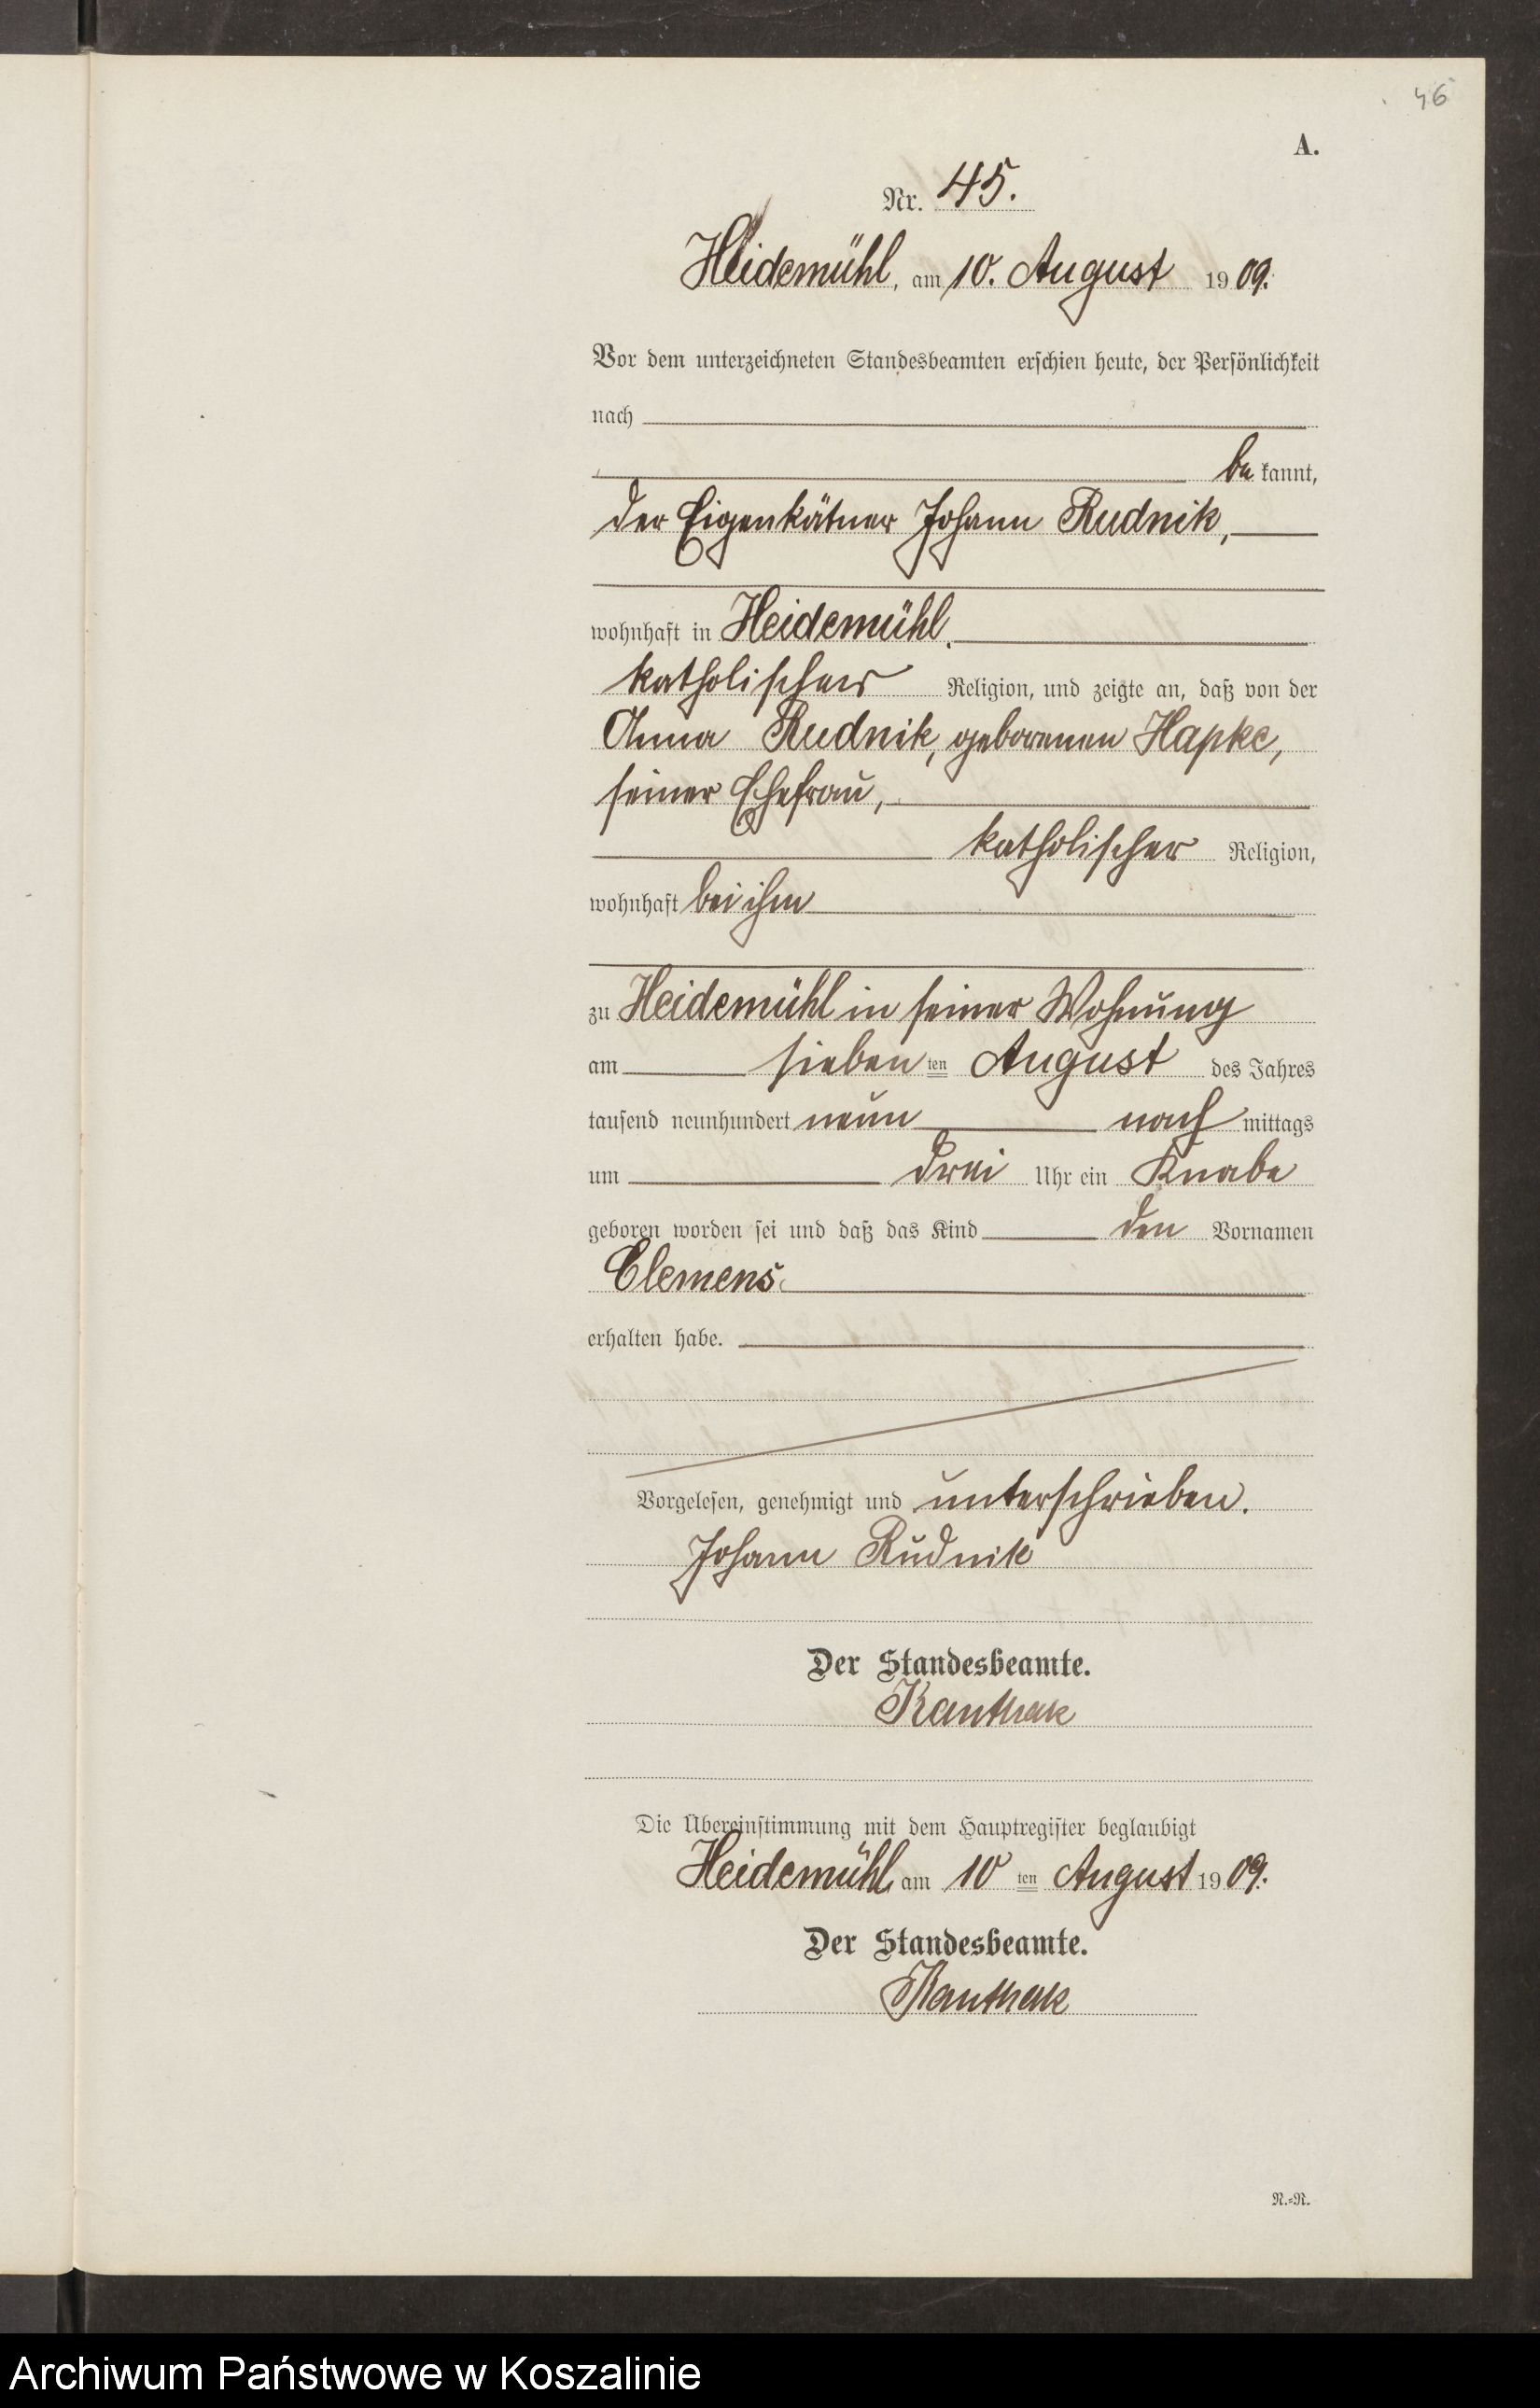 46
A.
Nr. 45.
Heidemühl, am 10. August 1909.
Vor dem unterzeichneten Standesbeamten erschien heute, der Persönlichkeit
nach
be kannt,
der Eigenkätner Johann Rudnik,
wohnhaft in Heidemühl,
katholischer Religion, und zeigte an, daß von der
Anna Rudnik, geborenen Hapke,
seiner Ehefrau,
katholischer Religion,
wohnhaft bei ihm
zu Heidemühl in seiner Wohnung
am sieben ten August des Jahres
tausend neunhundert neun nach mittags
um drei Uhr ein Knabe
geboren worden sei und daß das Kind den Vornamen
Clemens
erhalten habe.
Vorgelesen, genehmigt und unterschrieben.
Johann Rudnik
Der Standesbeamte.
Kanthak
Die Übereinstimmung mit dem Hauptregister beglaubigt
Heidemühl, am 10 ten August 1909.
Der Standesbeamte.
Kanthak
N.=N.
Archiwum Państwowe w Koszalinie